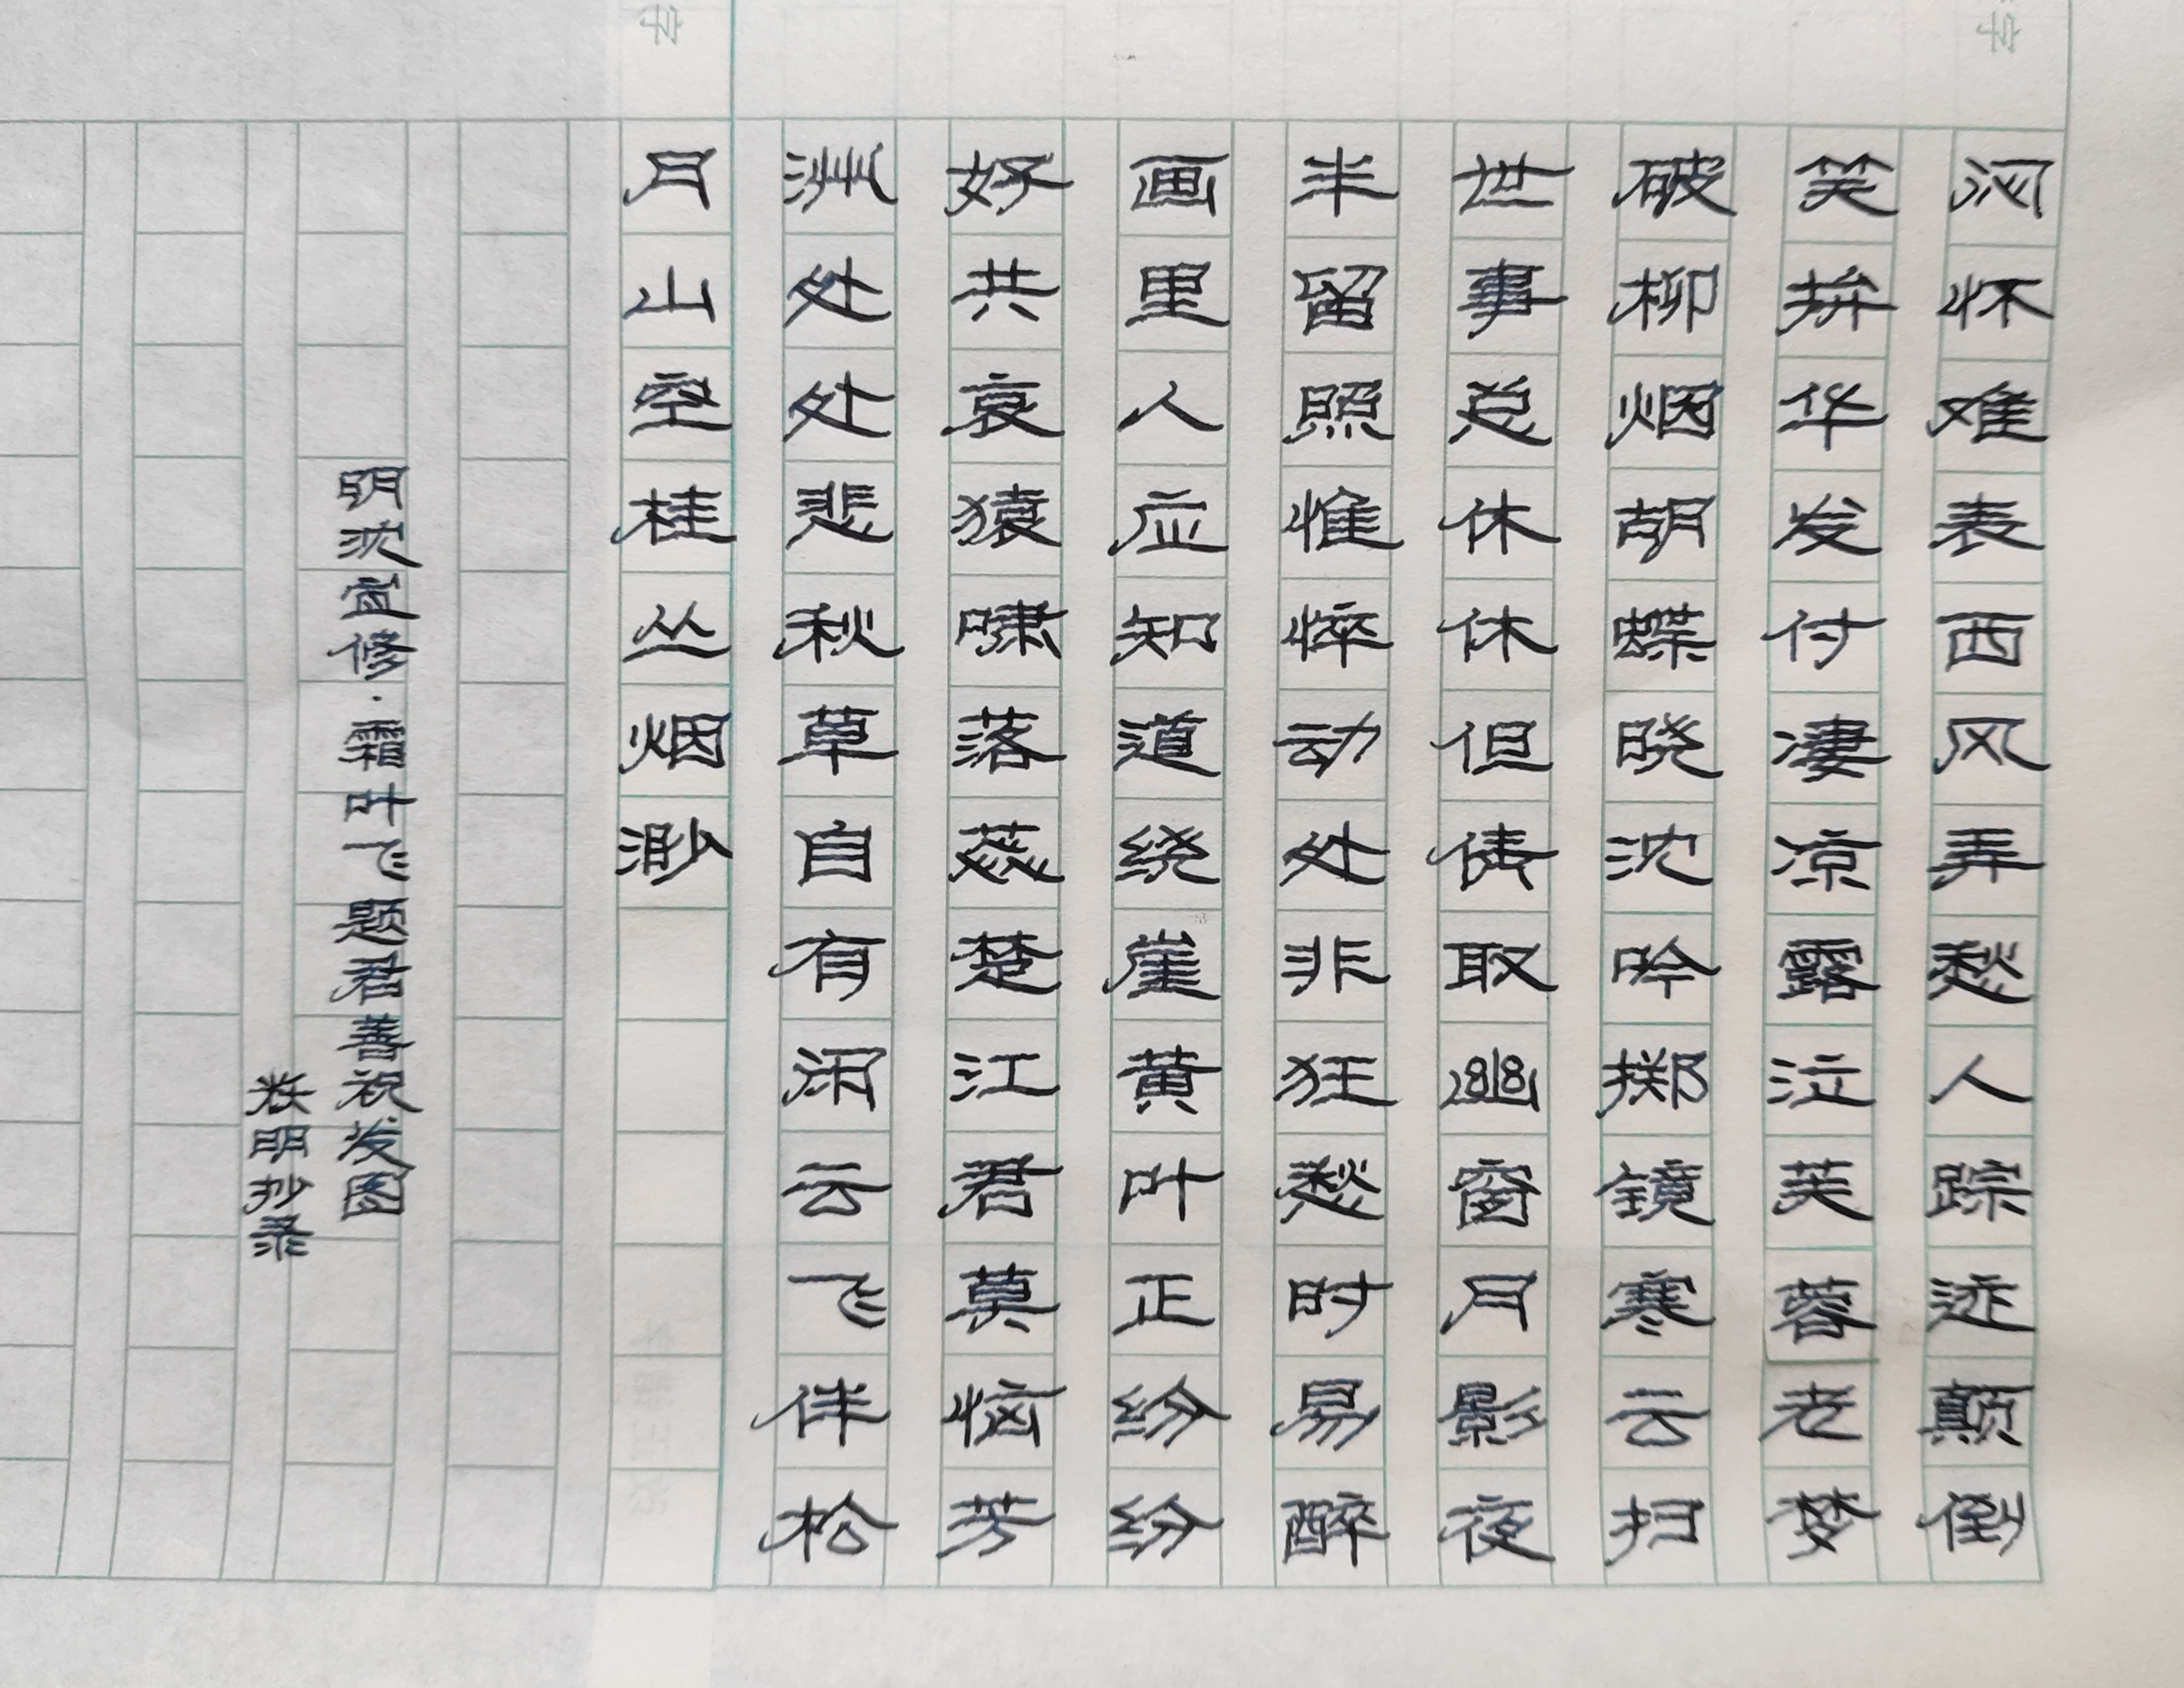 闷怀难表西风弄愁人踪迹颠倒
笑拚华发付凄凉露泣芙蓉老梦
破柳烟胡蝶晓沈吟掷镜寒云扫
世事总休休但倩取幽窗月影夜
半留照惟悴动处非狂愁时易醉
画里人应知道绕崖黄叶正纷纷
好共哀猿啸落蕊楚江君莫恼芳
洲处处悲秋草自有闲云飞伴松
月山空桂丛烟渺
明沈宜修·霜叶飞题君善祝发图
明抄录